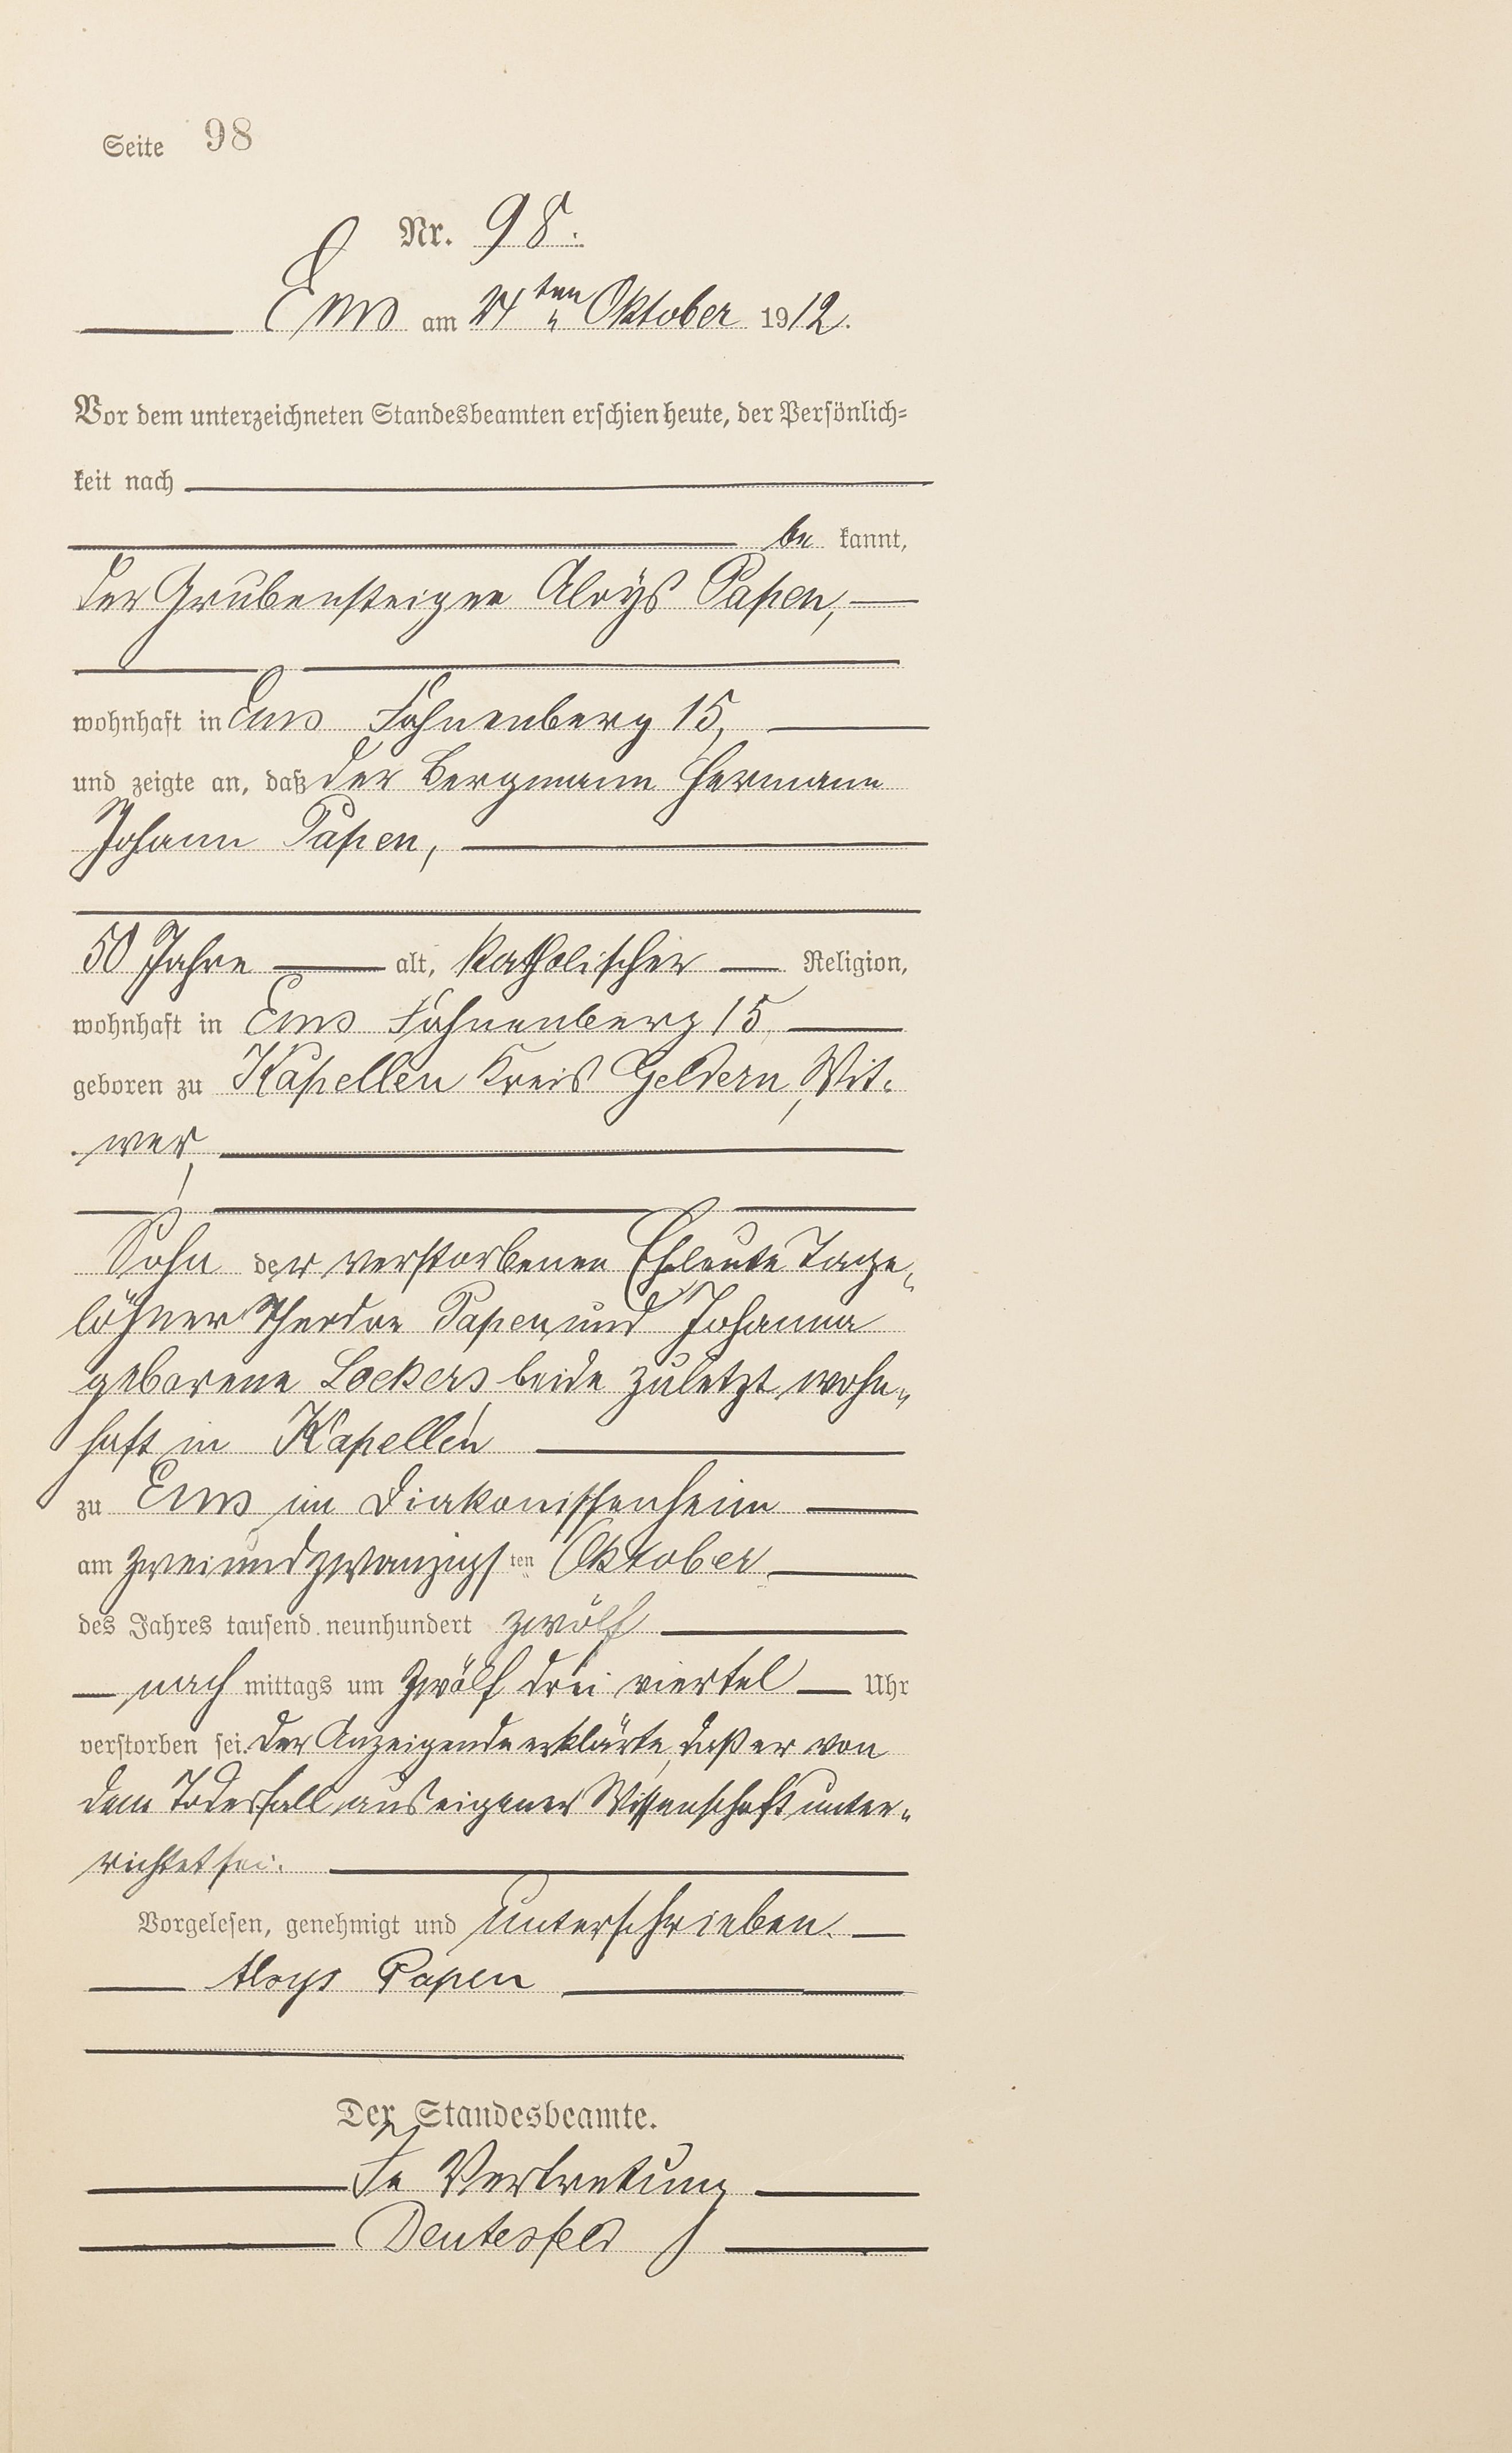 Seite 98
Nr. 98.
Ems am 24ten Oktober 1912.
Vor dem unterzeichneten Standesbeamten erschien heute, der Persönlich-
keit nach
be kannt,
der Grubensteiger Aloÿs Papen,
wohnhaft in Ems Fahnenberg 15,
und zeigte an, daß der Bergmann Hermann
Johann Papen,
50 Jahre alt, katholischer Religion,
wohnhaft in Ems Fahnenberg 15
geboren zu Kapellen Kreis Geldern, Wit-
wer,
Sohn der verstorbenen Eheleute Tage-
löhner Theodor Papen und Johanna
geborene Lockers, beide zuletzt wohn-
haft in Kapellen
zu Ems im Diakonissenheim
am zweiundzwanzigsten Oktober
des Jahres tausend neunhundert zwölf
nach mittags um zwölf drei viertel Uhr
verstorben sei. Der Anzeigende erklärte, daß er von
dem Todesfall aus eigener Wissenschaft unter-
richtet sei.
Vorgelesen, genehmigt und unterschrieben.
Aloys Papen
Der Standesbeamte.
In Vertretung